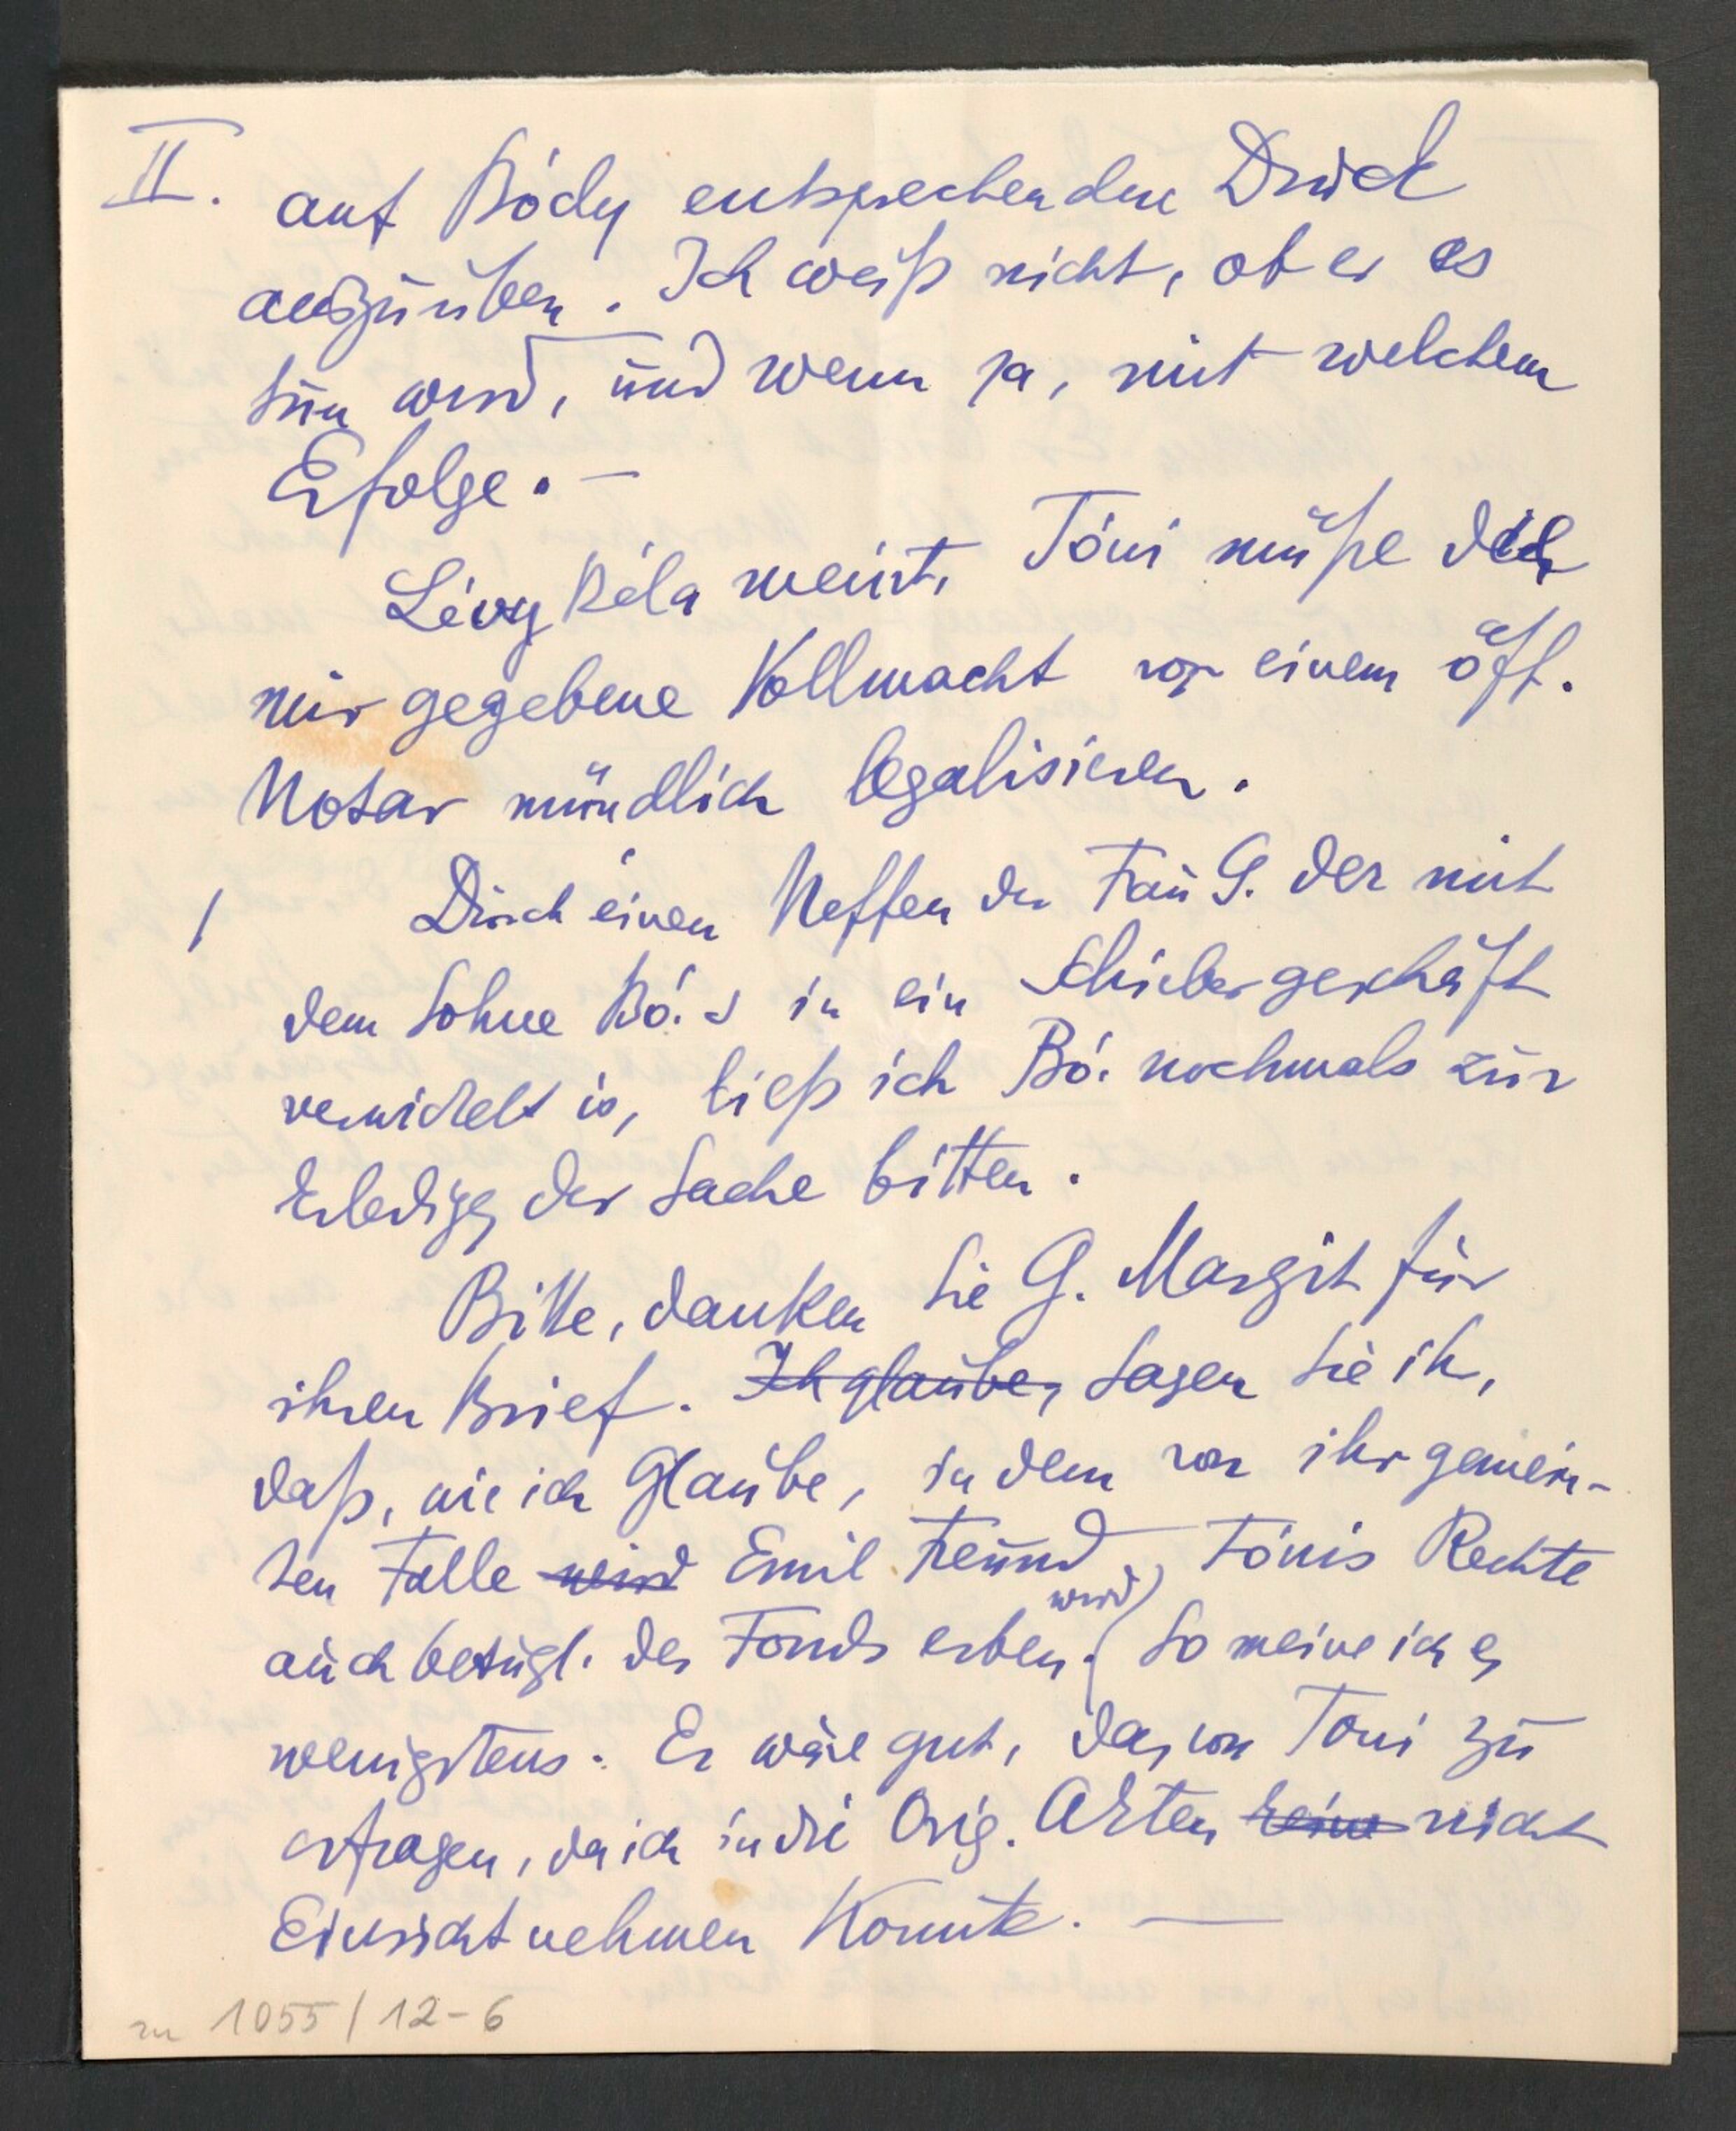 II. auf Bódy entsprechenden Druck
auszuüben. Ich weiß nicht, ob er es
tun wird, und wenn ja, mit welchem
Erfolge. –
Lévy Béla meint, Tóni müße die
mir gegebene Vollmacht vor einem öff.
Notar mündlich legalisieren.
/ Durch einen Neffen der Frau G. der mit
dem Sohne Bó.s in ein Schiebergeschäft
verwickelt is, ließ ich Bó. nochmals zur
Erledigg der Sache bitten.
Bitte, danken Sie G. Margit für
ihren Brief. Ich glaube, Sagen Sie ih,
daß, wie ich Glaube, in dem von ihr gemein-
ten Falle wird Emil Freund, Tónis Rechte
auch bezügl. des Fonds erben wird. So meine ich es
wenigstens. Es wäre gut, das von Toni zu
erfragen, da ich in die Orig. Akten keine nicht
Einsicht nehmen Konnte. —
zu 1055/12-6